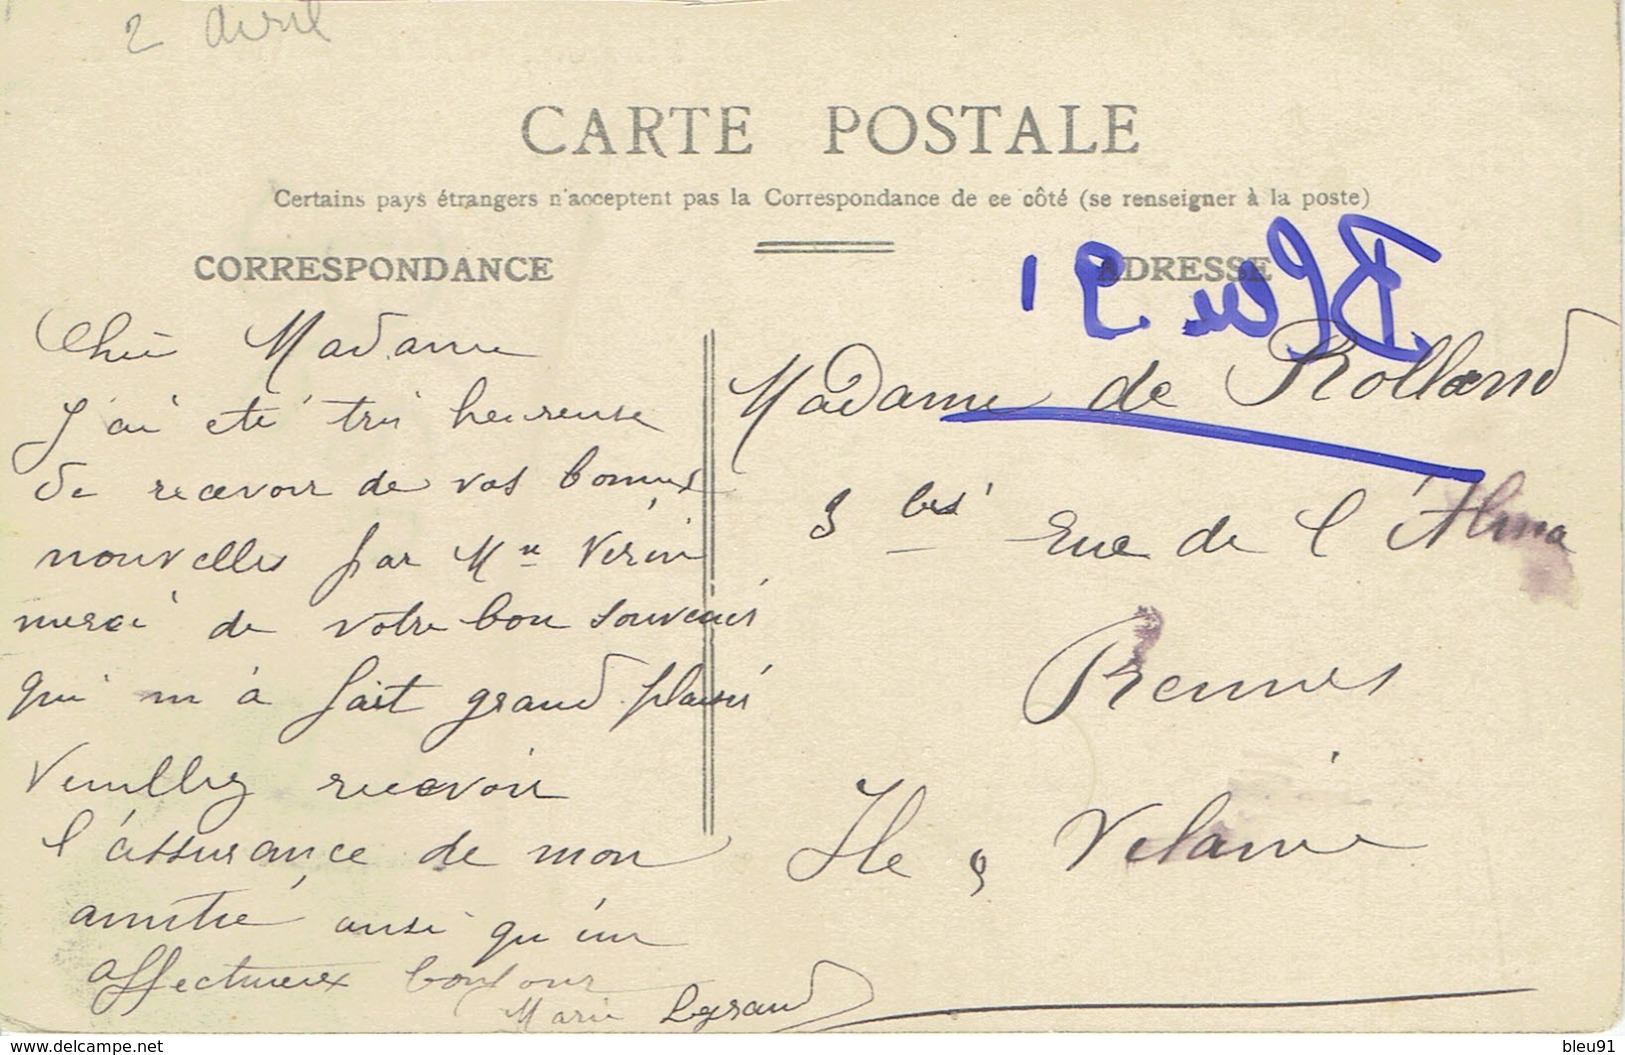 2 avril
CARTE POSTALE
Certains pays étrangers n'acceptent pas la Correspondance de ce côté (se renseigner à la poste)
CORRESPONDANCE
Chère Madame
J'ai eté très heureuse
de recevoir de vos bonnes
nouvelles par Mlle
merci de votre bon souvenir
qui m'à fait grand plaisir
Veuillez recevoir
l'assurance de mon
amitié ainsi qu'un
affectueux bonjour
Marie Legrand
ADRESSE
Bleu 91
Madame de Rolland
3 bis Rue de l'Alma
Rennes
Ile & Velaine
www.delcampe.net
bleu91